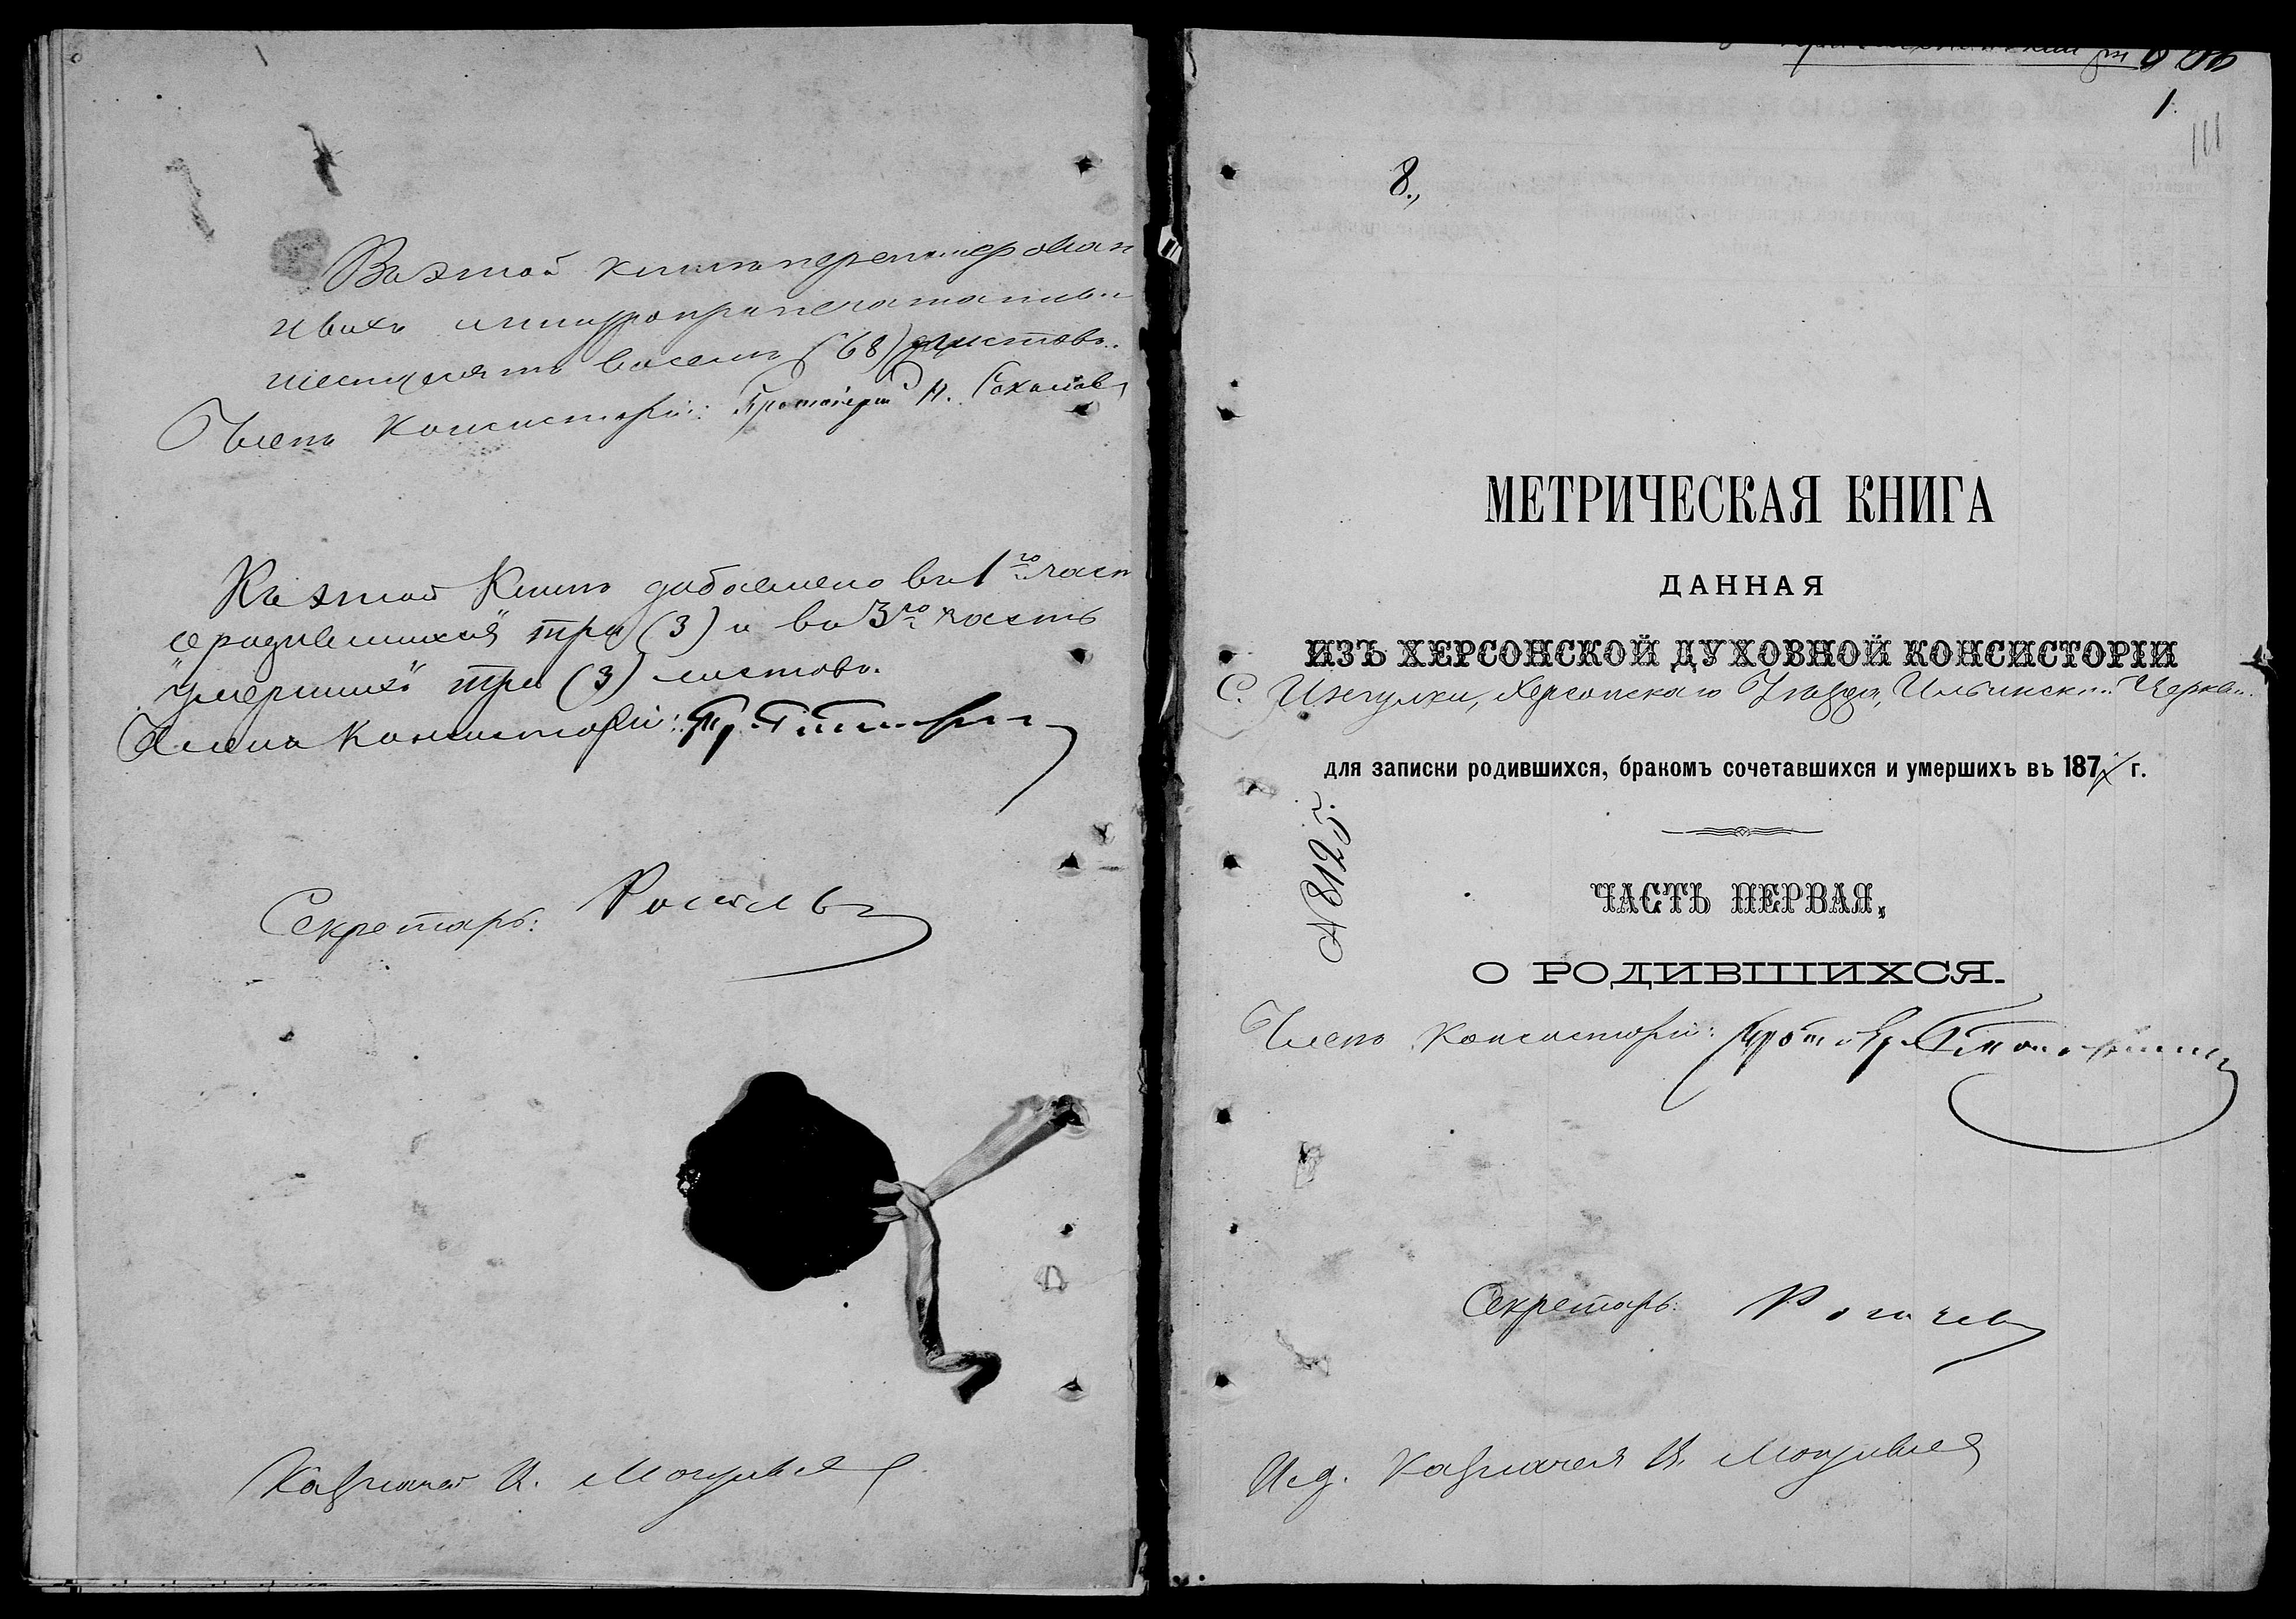 Въ этой книгѣ перенумерован
ныхъ и шнуроприпечатанны
шестьдесятъ восемь (68) листовъ.
Членъ Консисторіи: Протоіерей
Къ этой Книгѣ добавлено въ 1ю част
"о родившихся" три (3) и въ 3ю часть
"умершихъ" три (3) листовъ.
Членъ Консисторіи:
Секретарь:
Казначей И.
1.
8.,
МЕТРИЧЕСКАЯ КНИГА
ДАННАЯ
ИЗЪ ХЕРСОНСКОЙ ДУХОВНОЙ КОНСИСТОРІИ
С. Ингулки, Херсонскаго Уѣзда, Ильинск Церкви
для записки родившихся, бракомъ сочетавшихся и умершихъ въ 187 г.
№ 8125.
ЧАСТЬ ПЕРВАЯ,
О РОДИВШИХСЯ.
Членъ Консисторіи:
Секретарь: Рогачев
И. д. Казначея И.